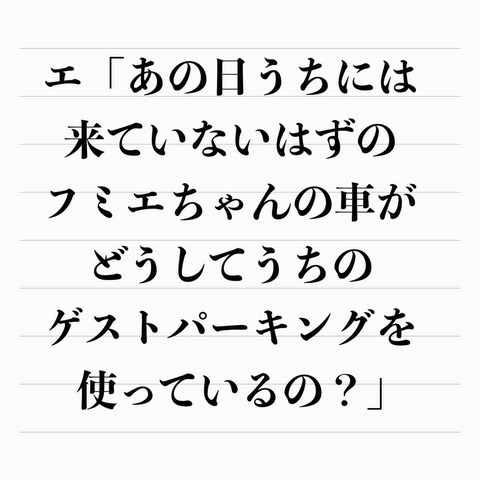 エ「あの日うちには
来ていないはずの
フミエちゃんの車が
どうしてうちの
ゲストパーキングを
使っているの？」